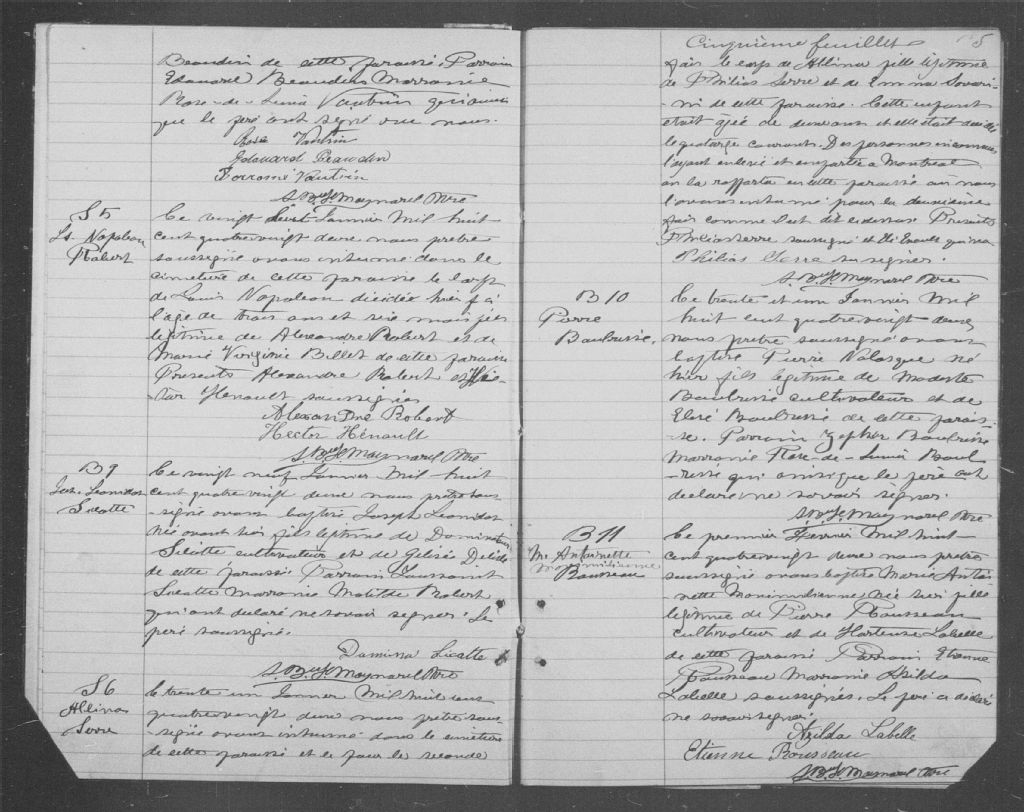 Beaudin de cette paroisse Parrain
Edouard Beaudin Marrainne
Rose-de-Lima Vautrin qui ainsi
que le père ont signé avec nous.
Rosa Vautrin
Edouard Beaudin
Porrome Vautrin
Maynard Ptre
S5
Ls. Napoleon
Robert
Ce vingt Janvier Mil huit
cent quatrevingt deux nous pretre
soussigné avons inhumé dans le
cimetiere de cette paroisse le corps
de Louis Napoleon décédé hier
l'age de trois ans et six mois fils
legitime de Alexandre Robert et de
Marie Virginie Billet de cette paroisse
Presents Alexandre Robert et Hec-
tor Henault soussignés
Alexandre Robert
Hector Hénault
Maynard Ptre
B9
Jos. Leonidas
Sicotte
Ce vingt neuf Janvier Mil huit
cent quatrevingt deux nous pretre sous-
signé avons baptisé Joseph Leonidas
né avant hier fils legitime de
Sicotte cultivateur et de
de cette paroisse Parrain Toussaint
Sicotte Marrainne Matilde Robert
qui ont declaré ne savoir signer. Le
père soussigné.
Damina Sicotte
Maynard Ptre
S6
Albina
Serre
Ce trente un Janvier Mil huit cent
quatrevingt deux nous pretre sous-
signé avons inhumé dans le cimetiere
de cette paroisse et ce pour la seconde
Cinquième feuillet
5
fois le corps de Albina fille legitime
de Philias Serre et de Emma
de cette paroisse. Cette enfant
etait agée de deux ans et elle etait
le quatorze courant. Des personnes inconnues
l'ayant enlevé et emportée a Montreal
on la rapporta en cette paroisse où nous
l'avons inhumé pour la deuxième
fois comme il est dit ci dessus Presents
Philias Serre soussigné et
Philias Serre su signer.
Maynard Ptre
B10
Pierre
Ce trente et un Janvier Mil
huit cent quatrevingt deux
nous pretre soussigné avons
baptisé Pierre né
hier fils legitime de Modeste
cultivateur et de
de cette parois-
se. Parrain
Marrainne Rose-de-Lima
qui ainsi que le père ont
declaré ne savoir signer.
Maynard Ptre
B11
Me Antoinette
Maximilienne
Rousseau
Ce premier Fevrier Mil huit
cent quatrevingt deux nous pretre
soussigné avons baptisé Marie Antoi-
nette née hier fille
legitime de Pierre Rousseau
cultivateur et de Hortense Labelle
de cette paroisse Parrain Etienne
Rousseau Marrainne Azilda
Labelle soussignés. Le père a déclaré
ne savoir signer.
Azilda Labelle
Etienne Rousseau
Maynard Ptre